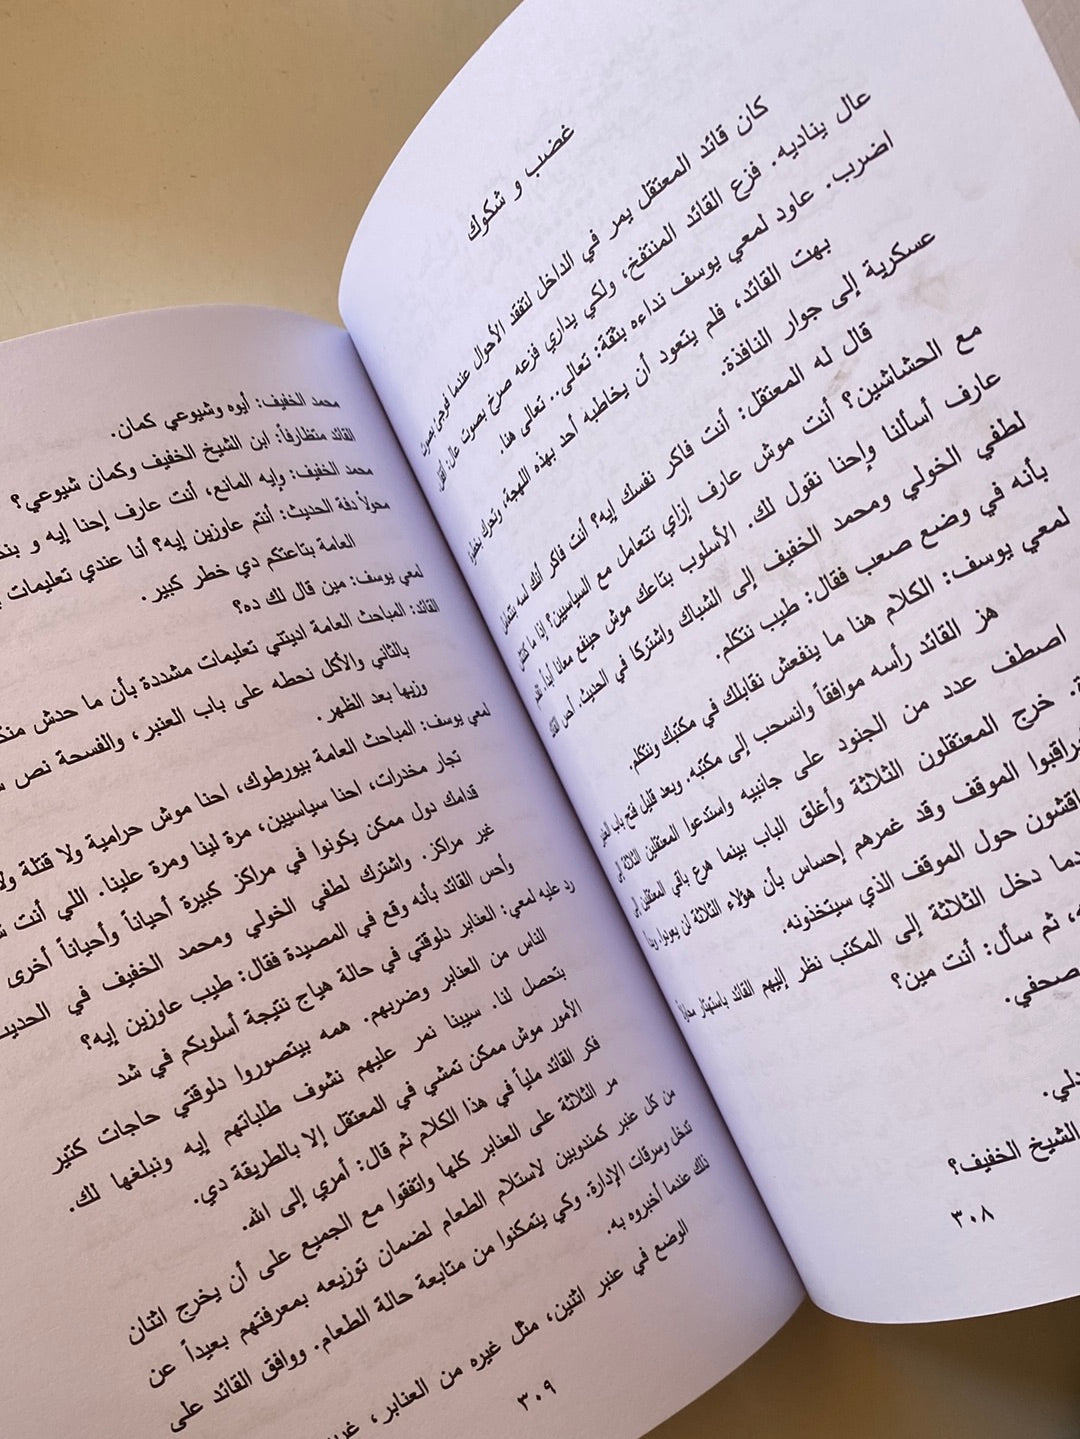 غضب و شكوك
كان قائد المعتقل يمر في الداخل لتفقد الأحوال عندما فوجئ بصوت
عال يناديه. فزع القائد المنتفخ، ولكي يداري فزعه صرخ بصوت عال:
اضرب. عاود لمعي يوسف نداءه بثقة: تعالى.. تعالى هنا.
بهت القائد، فلم يتعود أن يخاطبه أحد بهذه اللهجة، وتحرك بخطوات
عسكرية إلى جوار النافذة.
قال له المعتقل: أنت فاكر نفسك إيه؟ أنت فاكر أنك لسه بتتعامل
مع الحشاشين؟ أنت موش عارف إزاي تتعامل مع السياسيين؟ إذا ما كنتش
عارف أسألنا وإحنا نقول لك. الأسلوب بتاعك موش حينفع معانا أبداً. تقدم
لطفي الخولي ومحمد الخفيف إلى الشباك واشتركا في الحديث. أحس القائد
بأنه في وضع صعب فقال: طيب نتكلم.
لمعي يوسف: الكلام هنا ما ينفعش نقابلك في مكتبك ونتكلم.
هز القائد رأسه موافقاً وانسحب إلى مكتبه. وبعد قليل فتح باب العنبر
اصطف عدد من الجنود على جانبيه واستدعوا المعتقلين الثلاثة إلى
خرج المعتقلون الثلاثة وأغلق الباب بينما هرع باقي المعتقلين إلى
يراقبوا الموقف وقد غمرهم إحساس بأن هؤلاء الثلاثة لن يعودوا،
اقشون حول الموقف الذي سيتخذونه.
دما دخل الثلاثة إلى المكتب نظر إليهم القائد باستهتار
ثم سأل: أنت مين؟
صحفي.
دلي.
الشيخ الخفيف؟
٣٠٨
محمد الخفيف: أيوه وشيوعي كمان.
القائد متظارفاً: ابن الشيخ الخفيف وكمان شيوعي؟
محمد الخفيف: وإيه المانع، أنت عارف إحنا إيه و
محولاً دفة الحديث: أنتم عاوزين إيه؟ أنا عندي تعليمات
العامة بتاعتكم دي خطر كبير.
لمعي يوسف: مين قال لك ده؟
القائد: المباحث العامة اديتني تعليمات مشددة بأن ما حدش
بالثاني والأكل نحطه على باب العنبر، والفسحة نص
وزيها بعد الظهر.
لمعي يوسف: المباحث العامة بيورطوك، احنا موش حرامية ولا قتلة ولا
تجار مخدرات، احنا سياسيين، مرة لينا ومرة علينا. اللي أنت
قدامك دول ممكن يكونوا في مراكز كبيرة أحياناً وأحياناً أخرى
غير مراكز. واشترك لطفي الخولي ومحمد الخفيف في الحديث
وأحس القائد بأنه وقع في المصيدة فقال: طيب عاوزين إيه؟
رد عليه لمعي: العنابر دلوقتي في حالة هياج نتيجة أسلوبكم في شد
الناس من العنابر وضربهم. همه بيتصوروا دلوقتي حاجات كتير
بتحصل لنا. سيبنا نمر عليهم نشوف طلباتهم إيه ونبلغها لك.
الأمور موش ممكن تمشي في المعتقل إلا بالطريقة دي.
فكر القائد ملياً في هذا الكلام ثم قال: أمري إلى الله.
مر الثلاثة على العنابر كلها واتفقوا مع الجميع على أن يخرج اثنان
من كل عنبر كمندوبين لاستلام الطعام لضمان توزيعه بمعرفتهم بعيداً عن
تدخل وسرقات الإدارة. وكي يتمكنوا من متابعة حالة الطعام. ووافق القائد على
ذلك عندما أخبروه به.
الوضع في عنبر اثنين، مثل غيره من العنابر،
٣٠٩